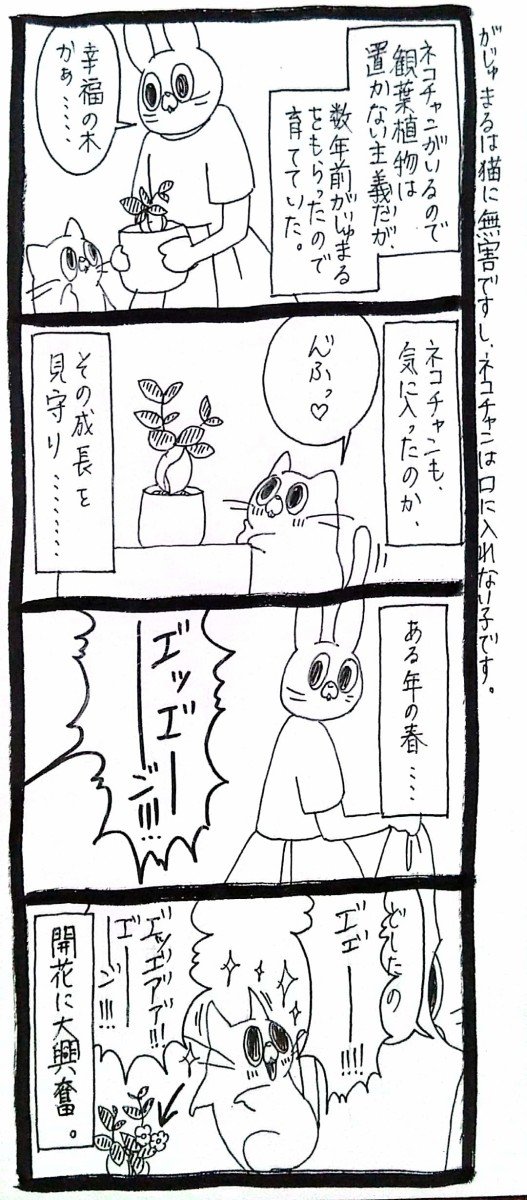 がじゅまるは猫に無害ですし、ネコチャンは口に入れない子です。
ネコチャンがいるので
観葉植物は
置かない主義だが、
数年前がじゅまる
をもらったので
育てていた。
幸福の木
かぁ……
ネコチャンも、
気に入ったのか、
んふっ♡
その成長を
見守り………
ある年の春……
エッエーーージ!!!
どしたの
エエーー!!!!
エッエアア!!!
エエーージ!!!
開花に大興奮。